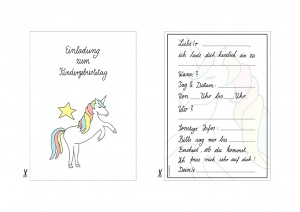 Einladung
zum
Kindergeburtstag
Liebe/r
ich lade dich herzlich ein zu
Wann?
Tag & Datum:
Von Uhr bis Uhr.
Wo?
Sonstige Infos:
Bitte sag mir bis
Bescheid ob du kommst.
Ich freue mich sehr auf dich!
Deine/e